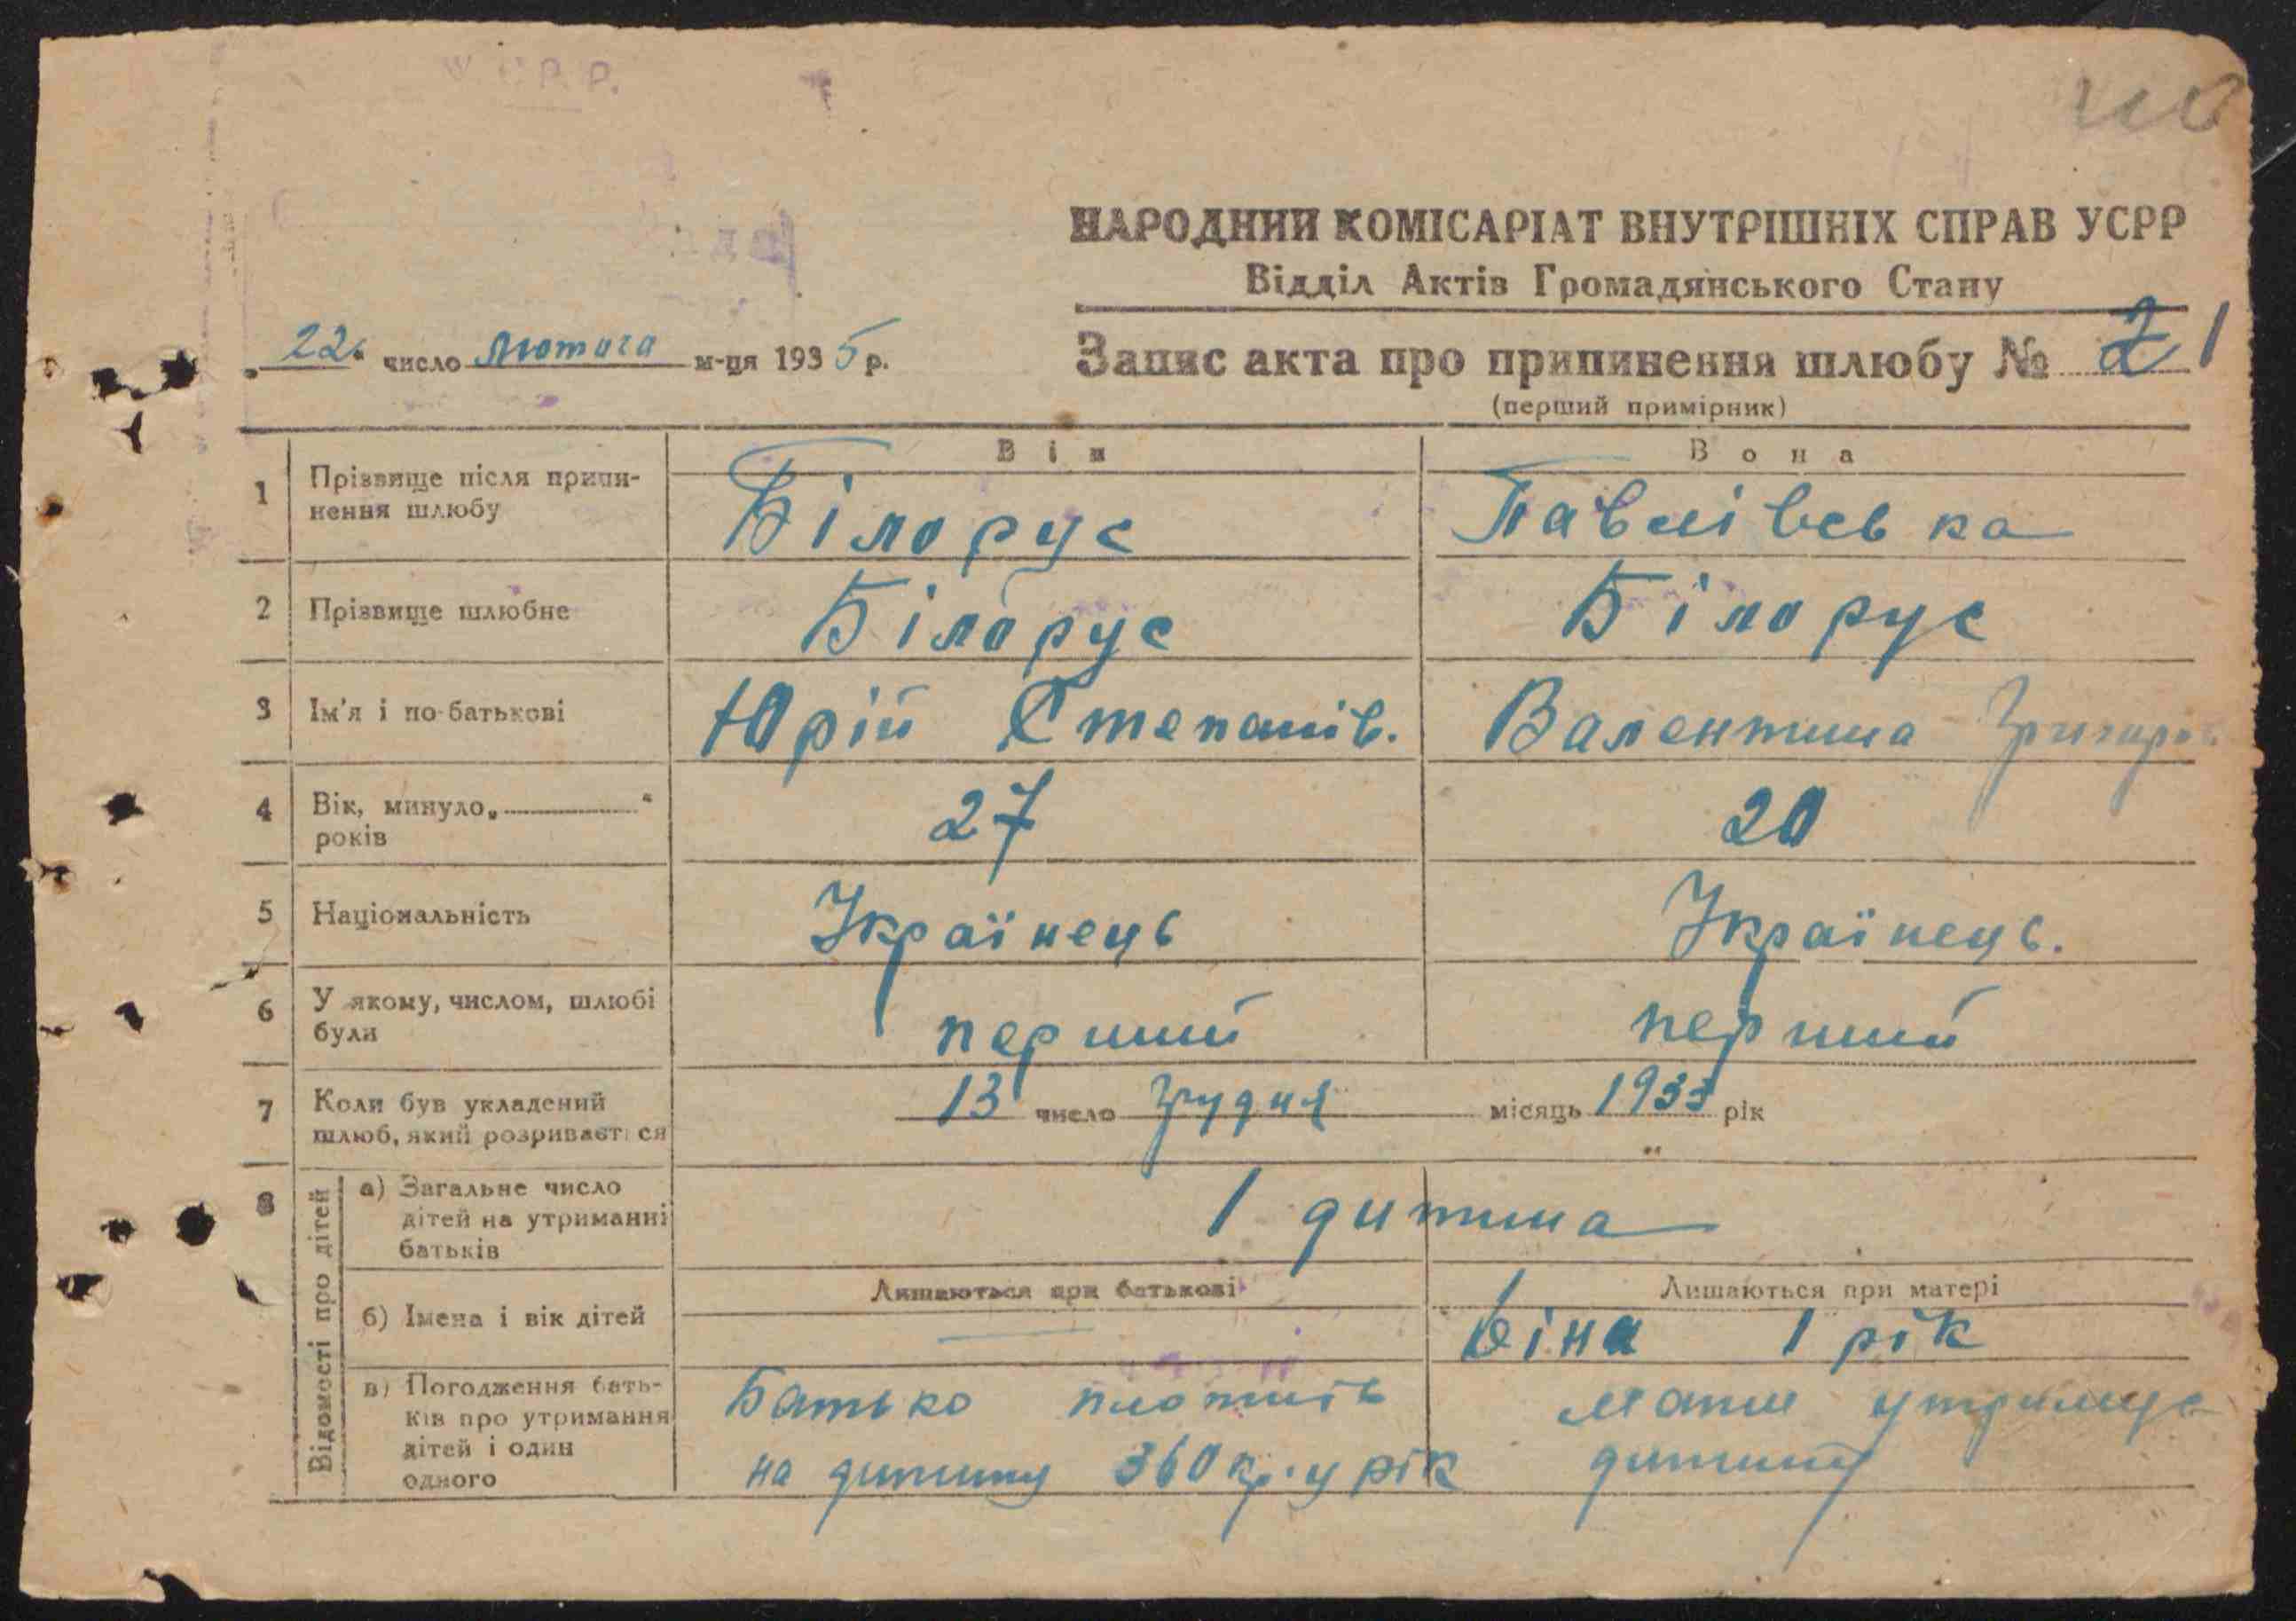 У С Р Р.
НАРОДНИЙ КОМІСАРІАТ ВНУТРІШНІХ СПРАВ УСРР
Відділ Актів Громадянського Стану
22 число лютого м-ця 1935 р.
Запис акта про припинення шлюбу № 21
(перший примірник)
Він Вона
1 Прізвище після припинення шлюбу Білорус Павлівська
2 Прізвище шлюбне Білорус Білорус
3 Ім'я і по-батькові Юрій Степанів. Валентина Григоров.
4 Вік, минуло „ “ років 27 20
5 Національність Українець Українець.
6 У якому, числом, шлюбі були перший перший
7 Коли був укладений шлюб, який розривається 13 число грудня місяць 1933 рік
8 Відомості про дітей
а) Загальне число дітей на утриманні батьків 1 дитина
Лишаються при батькові Лишаються при матері
б) Імена і вік дітей — 1 рік
в) Погодження батьків про утримання дітей і один одного
Батько плотить на дитину 360 кр. у рік
мати утримує дитину